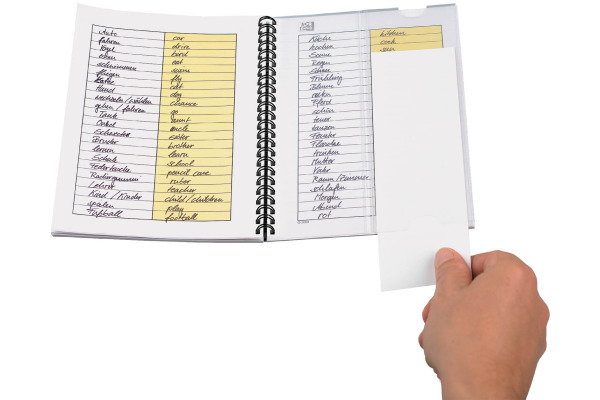 Auto car
fahren drive
Vogel bird
essen eat
schwimmen swim
fliegen fly
Katze cat
Hund dog
chance
gehen / fahren go
Tante aunt
Onkel uncle
Schwester sister
Bruder brother
lernen learn
Schule school
Federtasche pencil case
Radiergummi rubber
Lehrer teacher
Kind / Kinder child / children
spielen play
Fußball football
Küche kitchen
kochen cook
Sonne sun
Regen
Frühling
Blume
Pferd
schön
teuer
tanzen
Fenster
Flasche
trinken
Mutter
Vater
Raum / Zimmer
schlafen
Morgen
Abend
rot